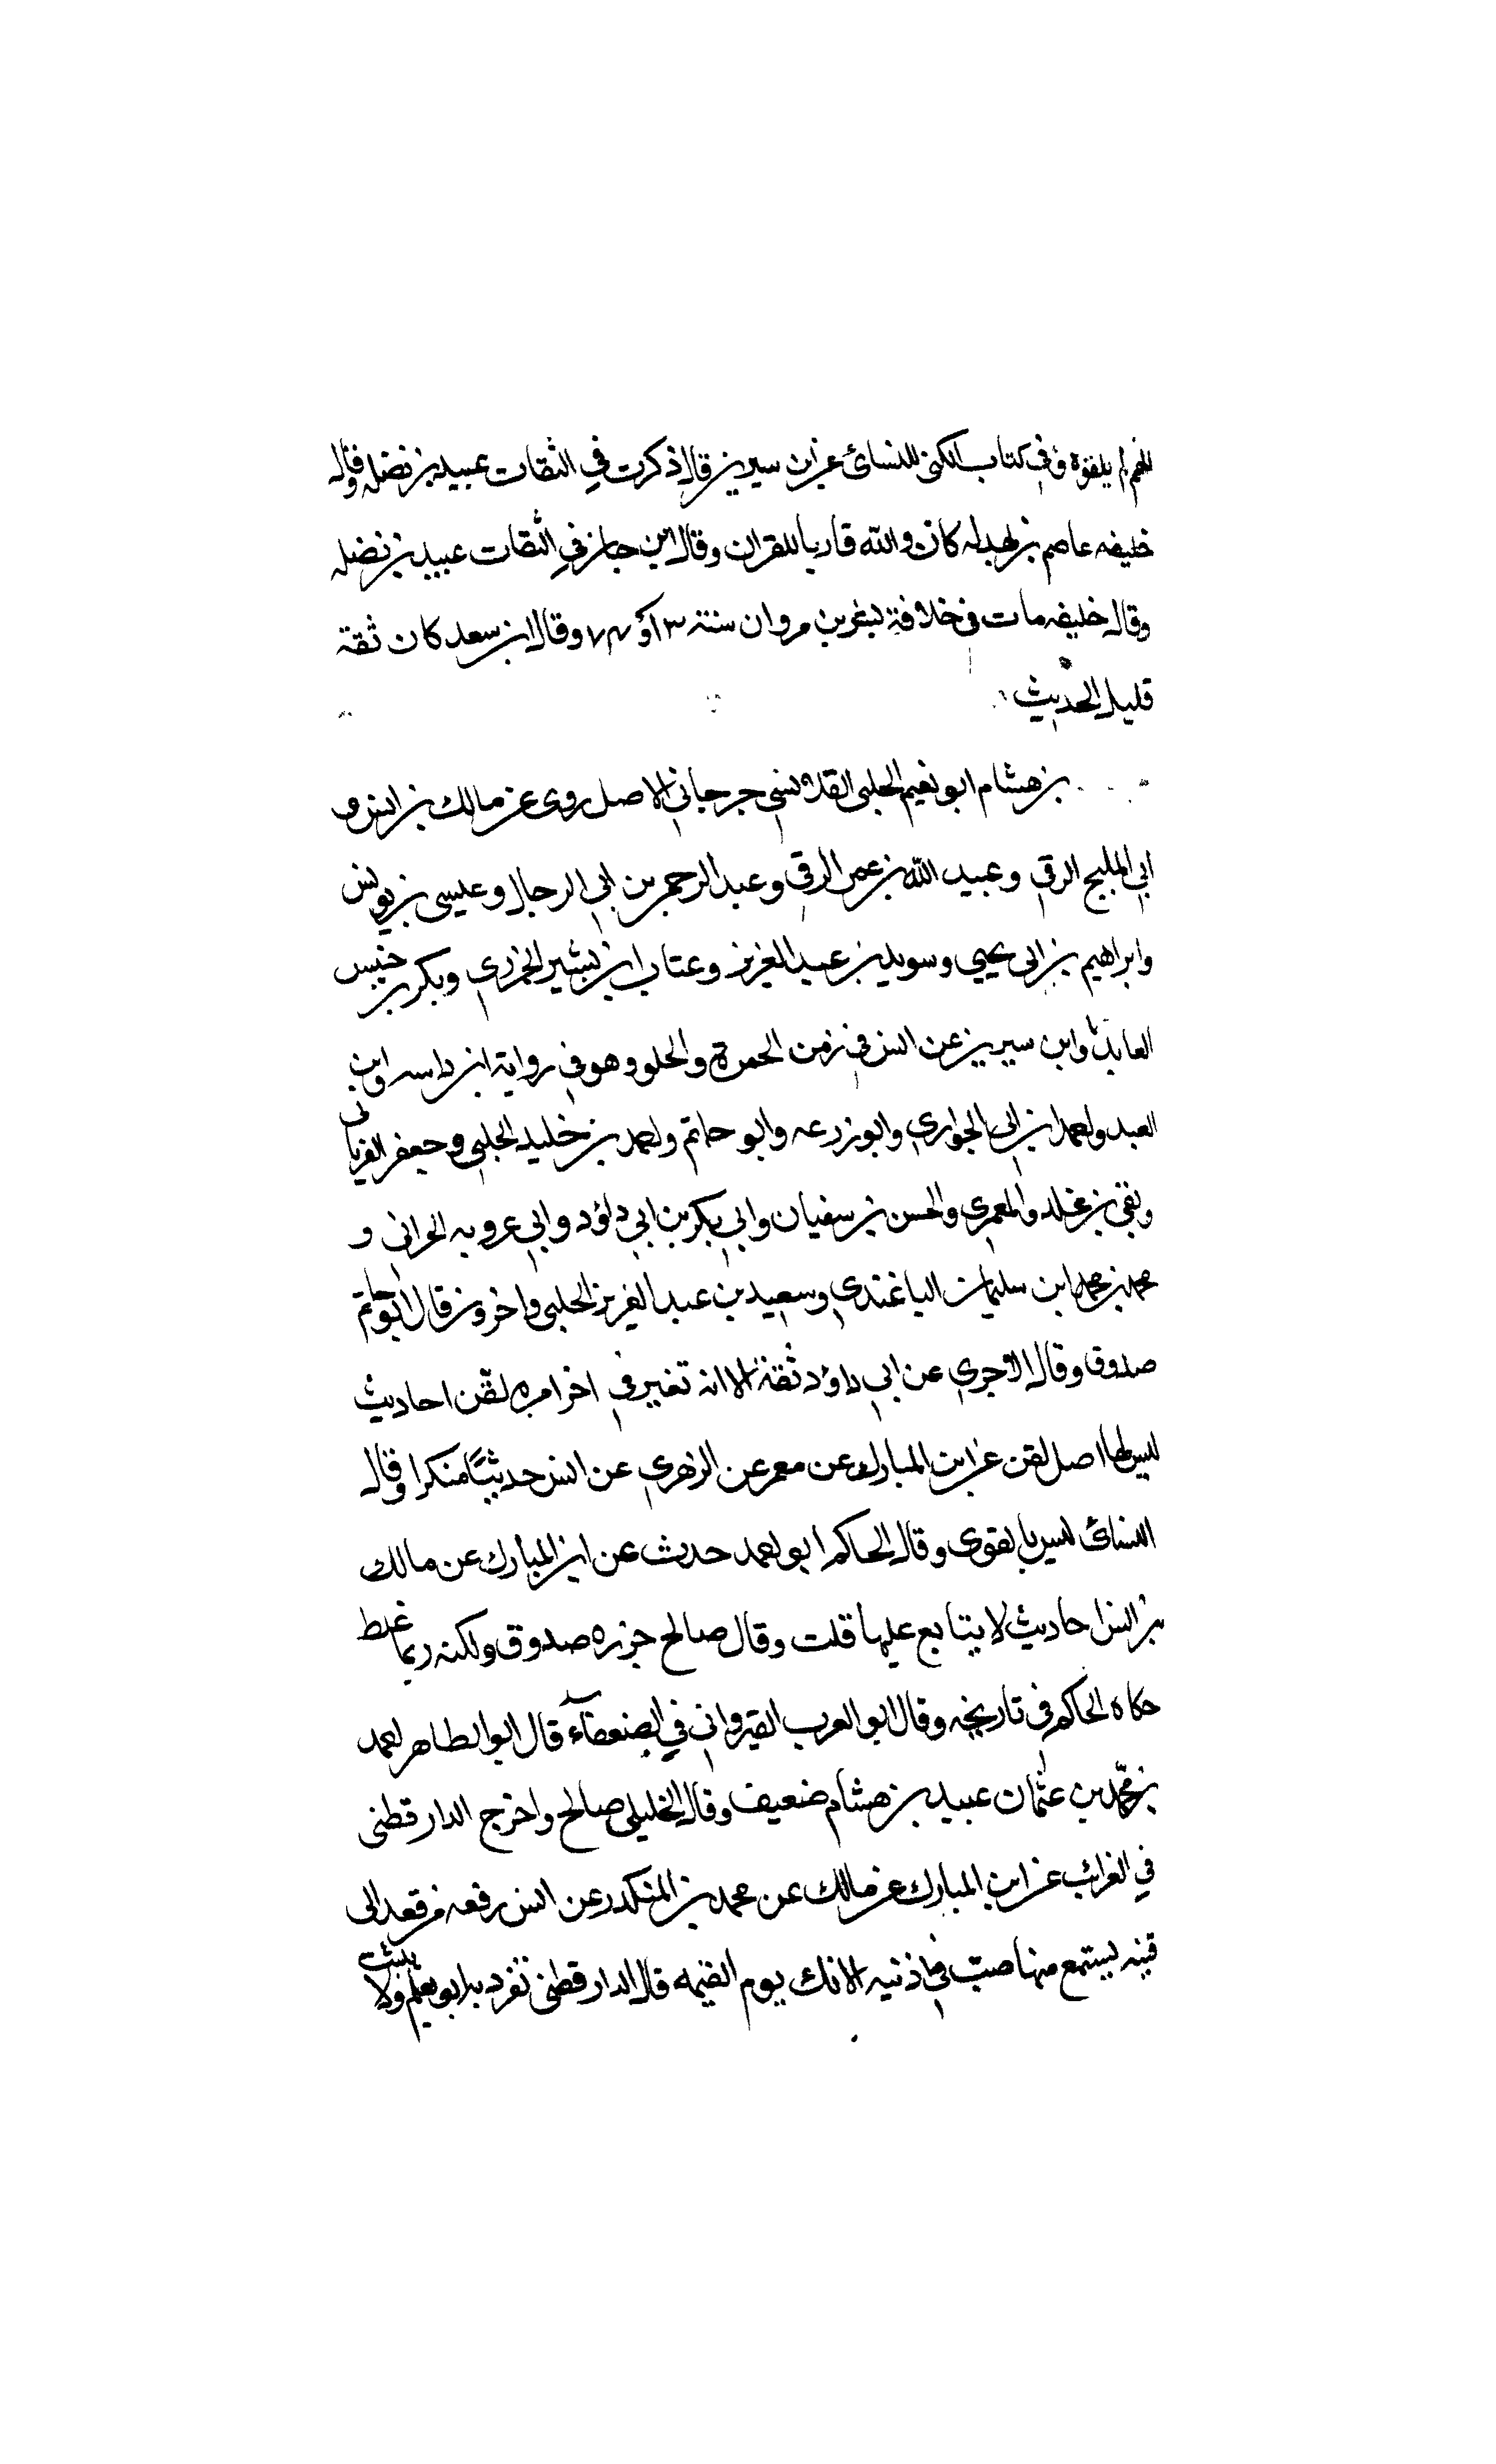 لم يلقوه وفي كتاب الكنى للنسائي عن ابن سيرين قال ذكرت في الثقات عبيد بن نضله وقال
خليفه عاصم بن بهدله كان والله قاريا للقران وقال ابن حبان في الثقات عبيد بن نضله
وقال خليفه مات في خلافة بشر بن مروان سنة ٣ او ٧٤ وقال ابن سعد كان ثقة
قليل الحديث
بن هشام ابو نعيم الحلبي القلانسي جرجاني الاصل روى عن مالك بن انس و
ابي المليح الرقي وعبيد الله بن عمر الرقي وعبد الرحمن بن ابي الرجال وعيسى بن يونس
وابراهيم بن ابي يحيى وسويد بن عبد العزيز وعتاب ابن بشير الجزري وبكر بن خنيس
العابد وابن سيرين عن انس في زمن الحمرة والحلو وهو في رواية ابن داسه وابن
العبد واحمد ابن ابي الحواري وابو زرعه وابو حاتم واحمد بن خليد الحلبي وجعفر الفريابي
وبقي بن مخلد والمعمري والحسن بن سفيان وابي بكر بن ابي داؤد وابي عروبه الحراني و
محمد بن محمد ابن سليمان الباغندي وسعيد بن عبد العزيز الحلبي واخرون قال ابو حاتم
صدوق وقال الآجري عن ابي داؤد ثقة الا انه تغير في اخر امره لقن احاديث
ليس لها اصل لقن عن ابن المبارك عن معمر عن الزهري عن انس حديثا منكرا وقال
النسائي ليس بالقوى وقال الحاكم ابو احمد حدث عن ابن المبارك عن مالك
بن انس احاديث لا يتابع عليها قلت وقال صالح جزره صدوق ولكنه ربما غلط
حكاه الحاكم في تاريخه وقال ابو العرب القيرواني في الضعفآء قال ابو الطاهر احمد
بن محمد بن عثمان عبيد بن هشام ضعيف وقال الخليلي صالح واخرج الدارقطني
في الغرائب عن ابن المبارك عن مالك عن محمد بن المنكدر عن انس رفعه من قعد الى
قينه يستمع منها صب في اذنيه الانك يوم القيمه قال الدارقطني تفرد به ابو نعيم ولا يثبت